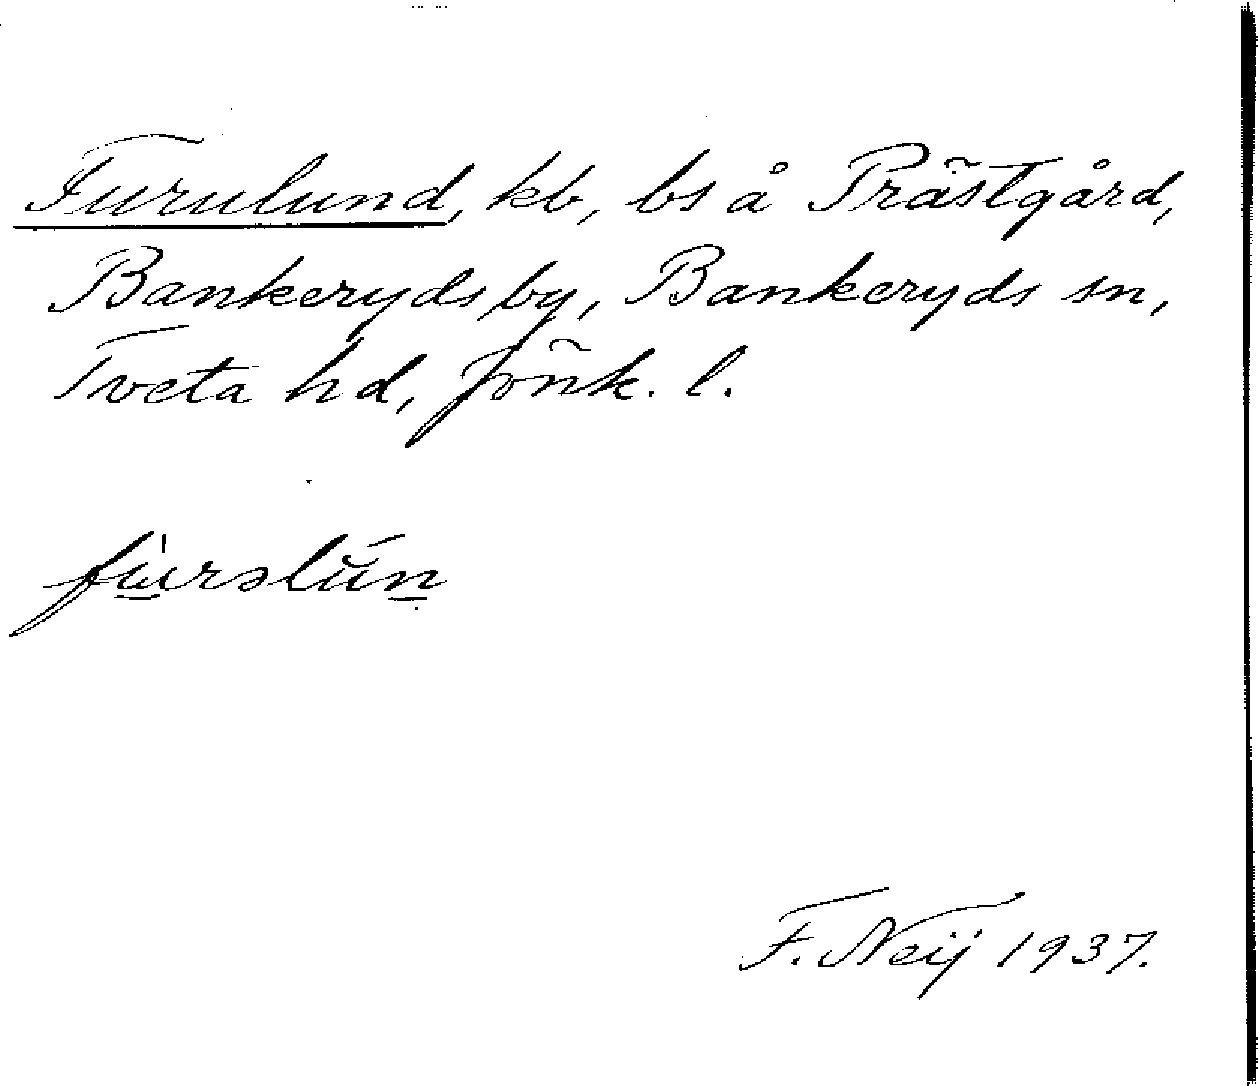 Furulund, kb, bs å Prästgård,
Bankeryds by, Bankeryds sn,
Tveta hd, Jönk. l.
fùrəlún
F. Neij 1937.